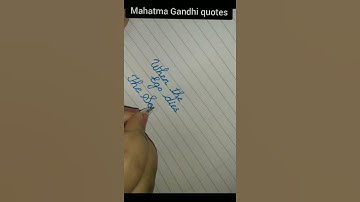 Mahatma Gandhi quotes
When the
Ego dies
The So